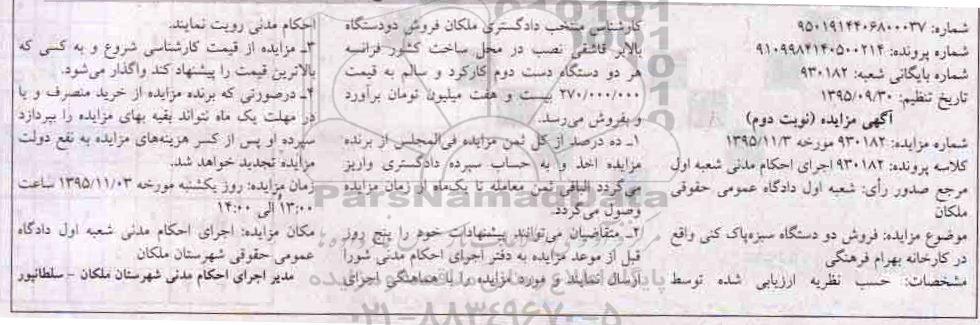 شماره: ۹۵۰۱۹۱۴۴۰۶۸۰۰۰۳۷
شماره پرونده: ۹۱۰۹۹۸۴۱۴۰۵۰۰۲۱۴
شماره بایگانی شعبه: ۹۳۰۱۸۲
تاریخ تنظیم: ۱۳۹۵/۰۹/۳۰
آگهی مزایده (نوبت دوم)
شماره مزایده: ۹۳۰۱۸۲ مورخه ۱۳۹۵/۱۱/۳
کلاسه پرونده: ۹۳۰۱۸۲ اجرای احکام مدنی شعبه اول
مرجع صدور رأی: شعبه اول دادگاه عمومی حقوقی
ملکان
موضوع مزایده: فروش دو دستگاه سبزه‌پاک کنی واقع
در کارخانه بهرام فرهنگی
مشخصات: حسب نظریه ارزیابی شده توسط
کارشناس منتخب دادگستری ملکان فروش دودستگاه
بالابر قاشقی نصب در محل ساخت کشور فرانسه
هر دو دستگاه دست دوم کارکرد و سالم به قیمت
۲۷۰/۰۰۰/۰۰۰ بیست و هفت میلیون تومان برآورد
و بفروش می‌رسد.
۱ـ ده درصد از کل ثمن مزایده فی‌المجلس از برنده
مزایده اخذ و به حساب سپرده دادگستری واریز
می‌گردد الباقی ثمن معامله تا یک‌ماه از زمان مزایده
وصول می‌گردد.
۲ـ متقاضیان می‌توانند پیشنهادات خود را پنج روز
قبل از موعد مزایده به دفتر اجرای احکام مدنی شورا
ارسال نمایند و مورد مزایده را با هماهنگی اجرای
احکام مدنی رویت نمایند.
۳ـ مزایده از قیمت کارشناسی شروع و به کسی که
بالاترین قیمت را پیشنهاد کند واگذار می‌شود.
۴ـ درصورتی که برنده مزایده از خرید منصرف و یا
در مهلت یک ماه نتواند بقیه بهای مزایده را بپردازد
سپرده او پس از کسر هزینه‌های مزایده به نفع دولت
مزایده تجدید خواهد شد.
زمان مزایده: روز یکشنبه مورخه ۱۳۹۵/۱۱/۰۳ ساعت
۱۳:۰۰ الی ۱۴:۰۰
مکان مزایده: اجرای احکام مدنی شعبه اول دادگاه
عمومی حقوقی شهرستان ملکان
مدیر اجرای احکام مدنی شهرستان ملکان – سلطانپور
ParsNamadData
۰۲۱-۸۸۳۴۹۶۷۰-۵